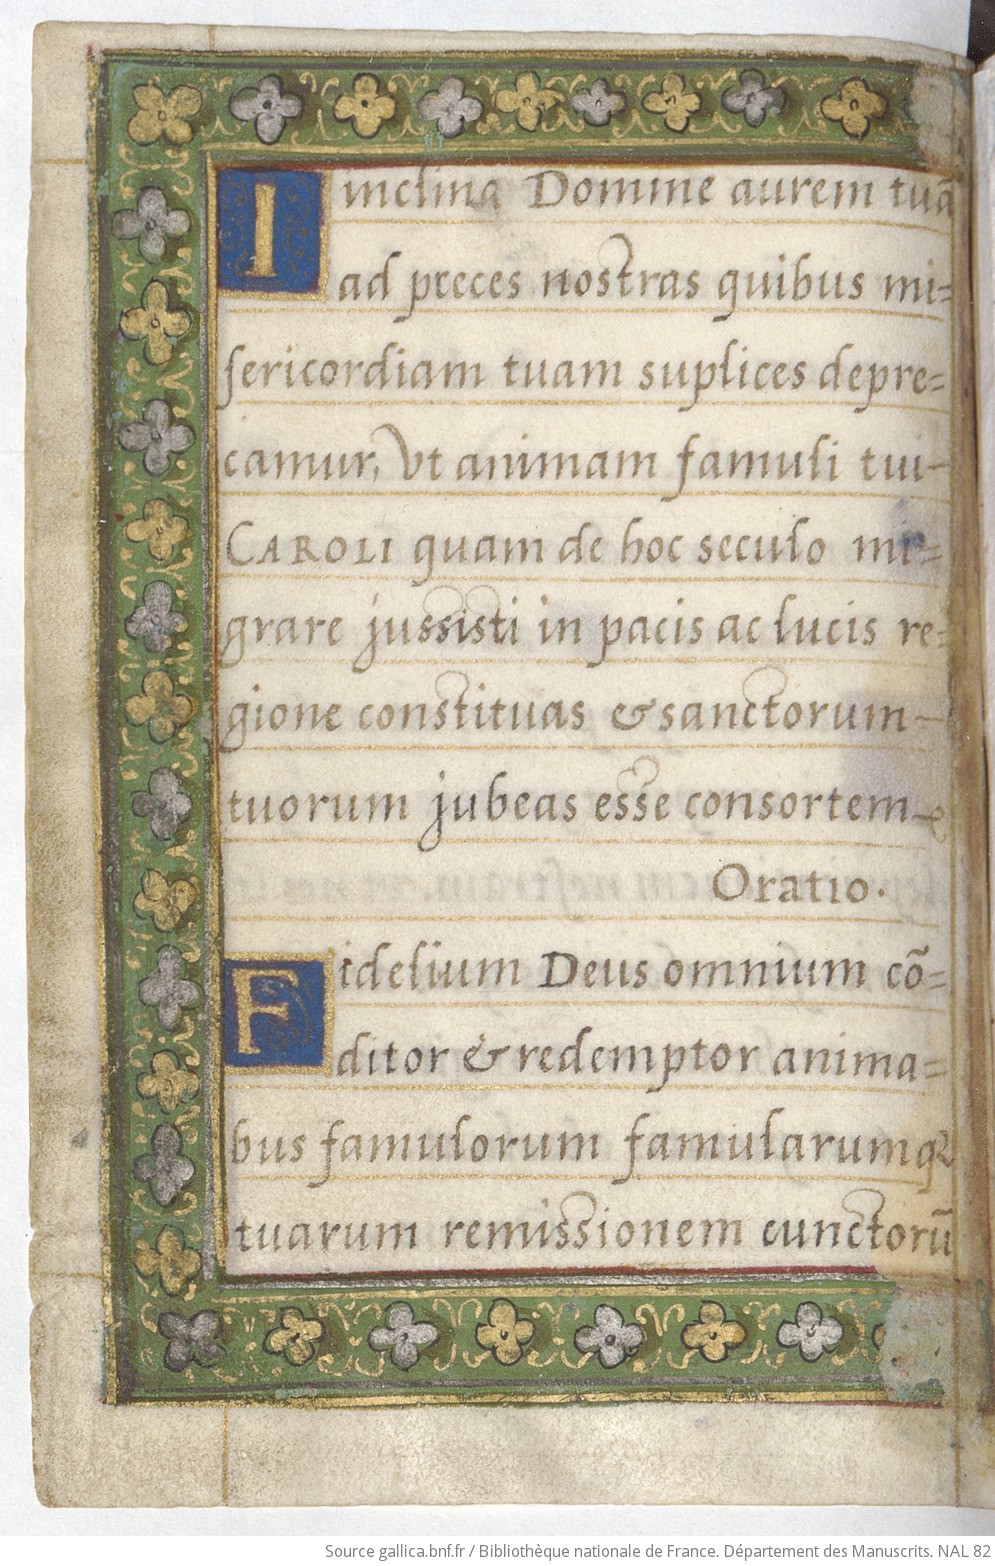 Inclina Domine aurem tuã
ad preces nostras quibus mi=
sericordiam tuam suplices depre=
camur, vt animam famuli tui-
CAROLI quam de hoc seculo mi=
grare jussisti in pacis ac lucis re=
gione constituas & sanctorum-
tuorum jubeas esse consortem
Oratio.
Fidelium Deus omnium cõ=
ditor & redemptor anima=
bus famulorum famularumqꝫ
tuarum remissionem cunctorũ
Source gallica.bnf.fr / Bibliothèque nationale de France. Département des Manuscrits. NAL 82